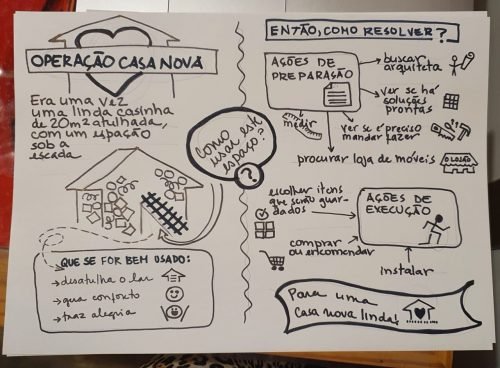 OPERAÇÃO CASA NOVA
Era uma vez
uma linda casinha
de 20m2 atulhada,
com um espação
sob a
escada
QUE SE FOR BEM USADO:
→ desatulha o lar
→ gera conforto
→ traz alegria
Como
usar este
espaço?
?
ENTÃO, COMO RESOLVER?
AÇÕES DE
PREPARAÇÃO
buscar
arquiteta
ver se há
soluções
prontas
medir
ver se é preciso
mandar fazer
procurar loja de móveis
O LOJÃO
escolher itens
que serão guar-
dados
AÇÕES DE
EXECUÇÃO
comprar
ou encomendar
instalar
Para uma
casa nova linda!